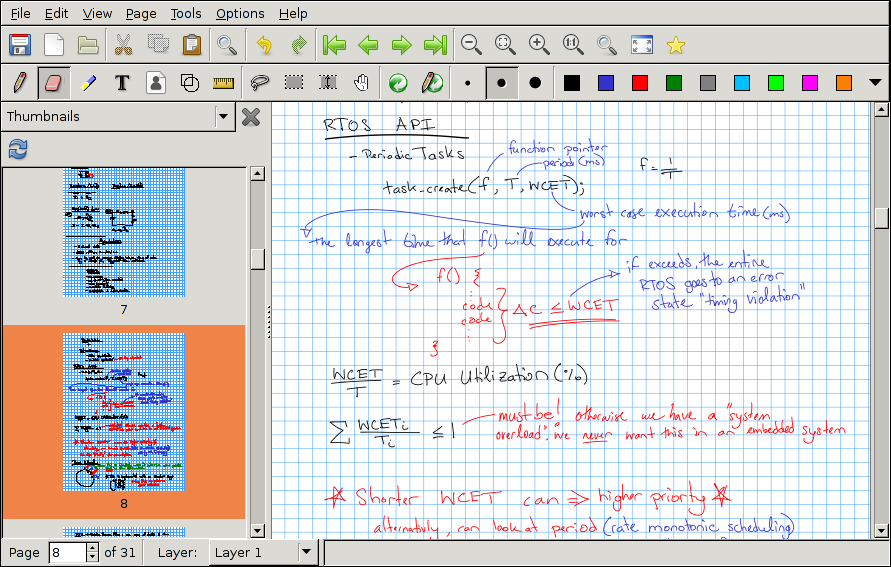 File Edit View Page Tools Options Help
Thumbnails
7
8
Page 8 of 31 Layer: Layer 1
RTOS API
- Periodic Tasks
function pointer
period (ms)
f = 1/T
task_create(f, T, WCET);
worst case execution time (ms)
the longest time that f() will execute for
f() {
:
code
code
:
}
ΔC ≤ WCET
if exceeds, the entire
RTOS goes to an error
state "timing violation"
WCET/T = CPU Utilization (%)
∑ WCETi/Ti ≤ 1
must be! otherwise we have a "system
overload". we never want this in an embedded system
★ Shorter WCET can ⇒ higher priority ★
alternativly, can look at period (rate monotonic scheduling)